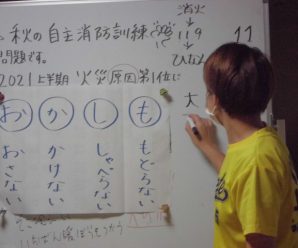 秋の自主消防訓練
問題です。
2021上半期 火災原因第1位は
消火
119
ひなん
11
大
お か し も
おさない
かけない
しゃべらない
もどらない